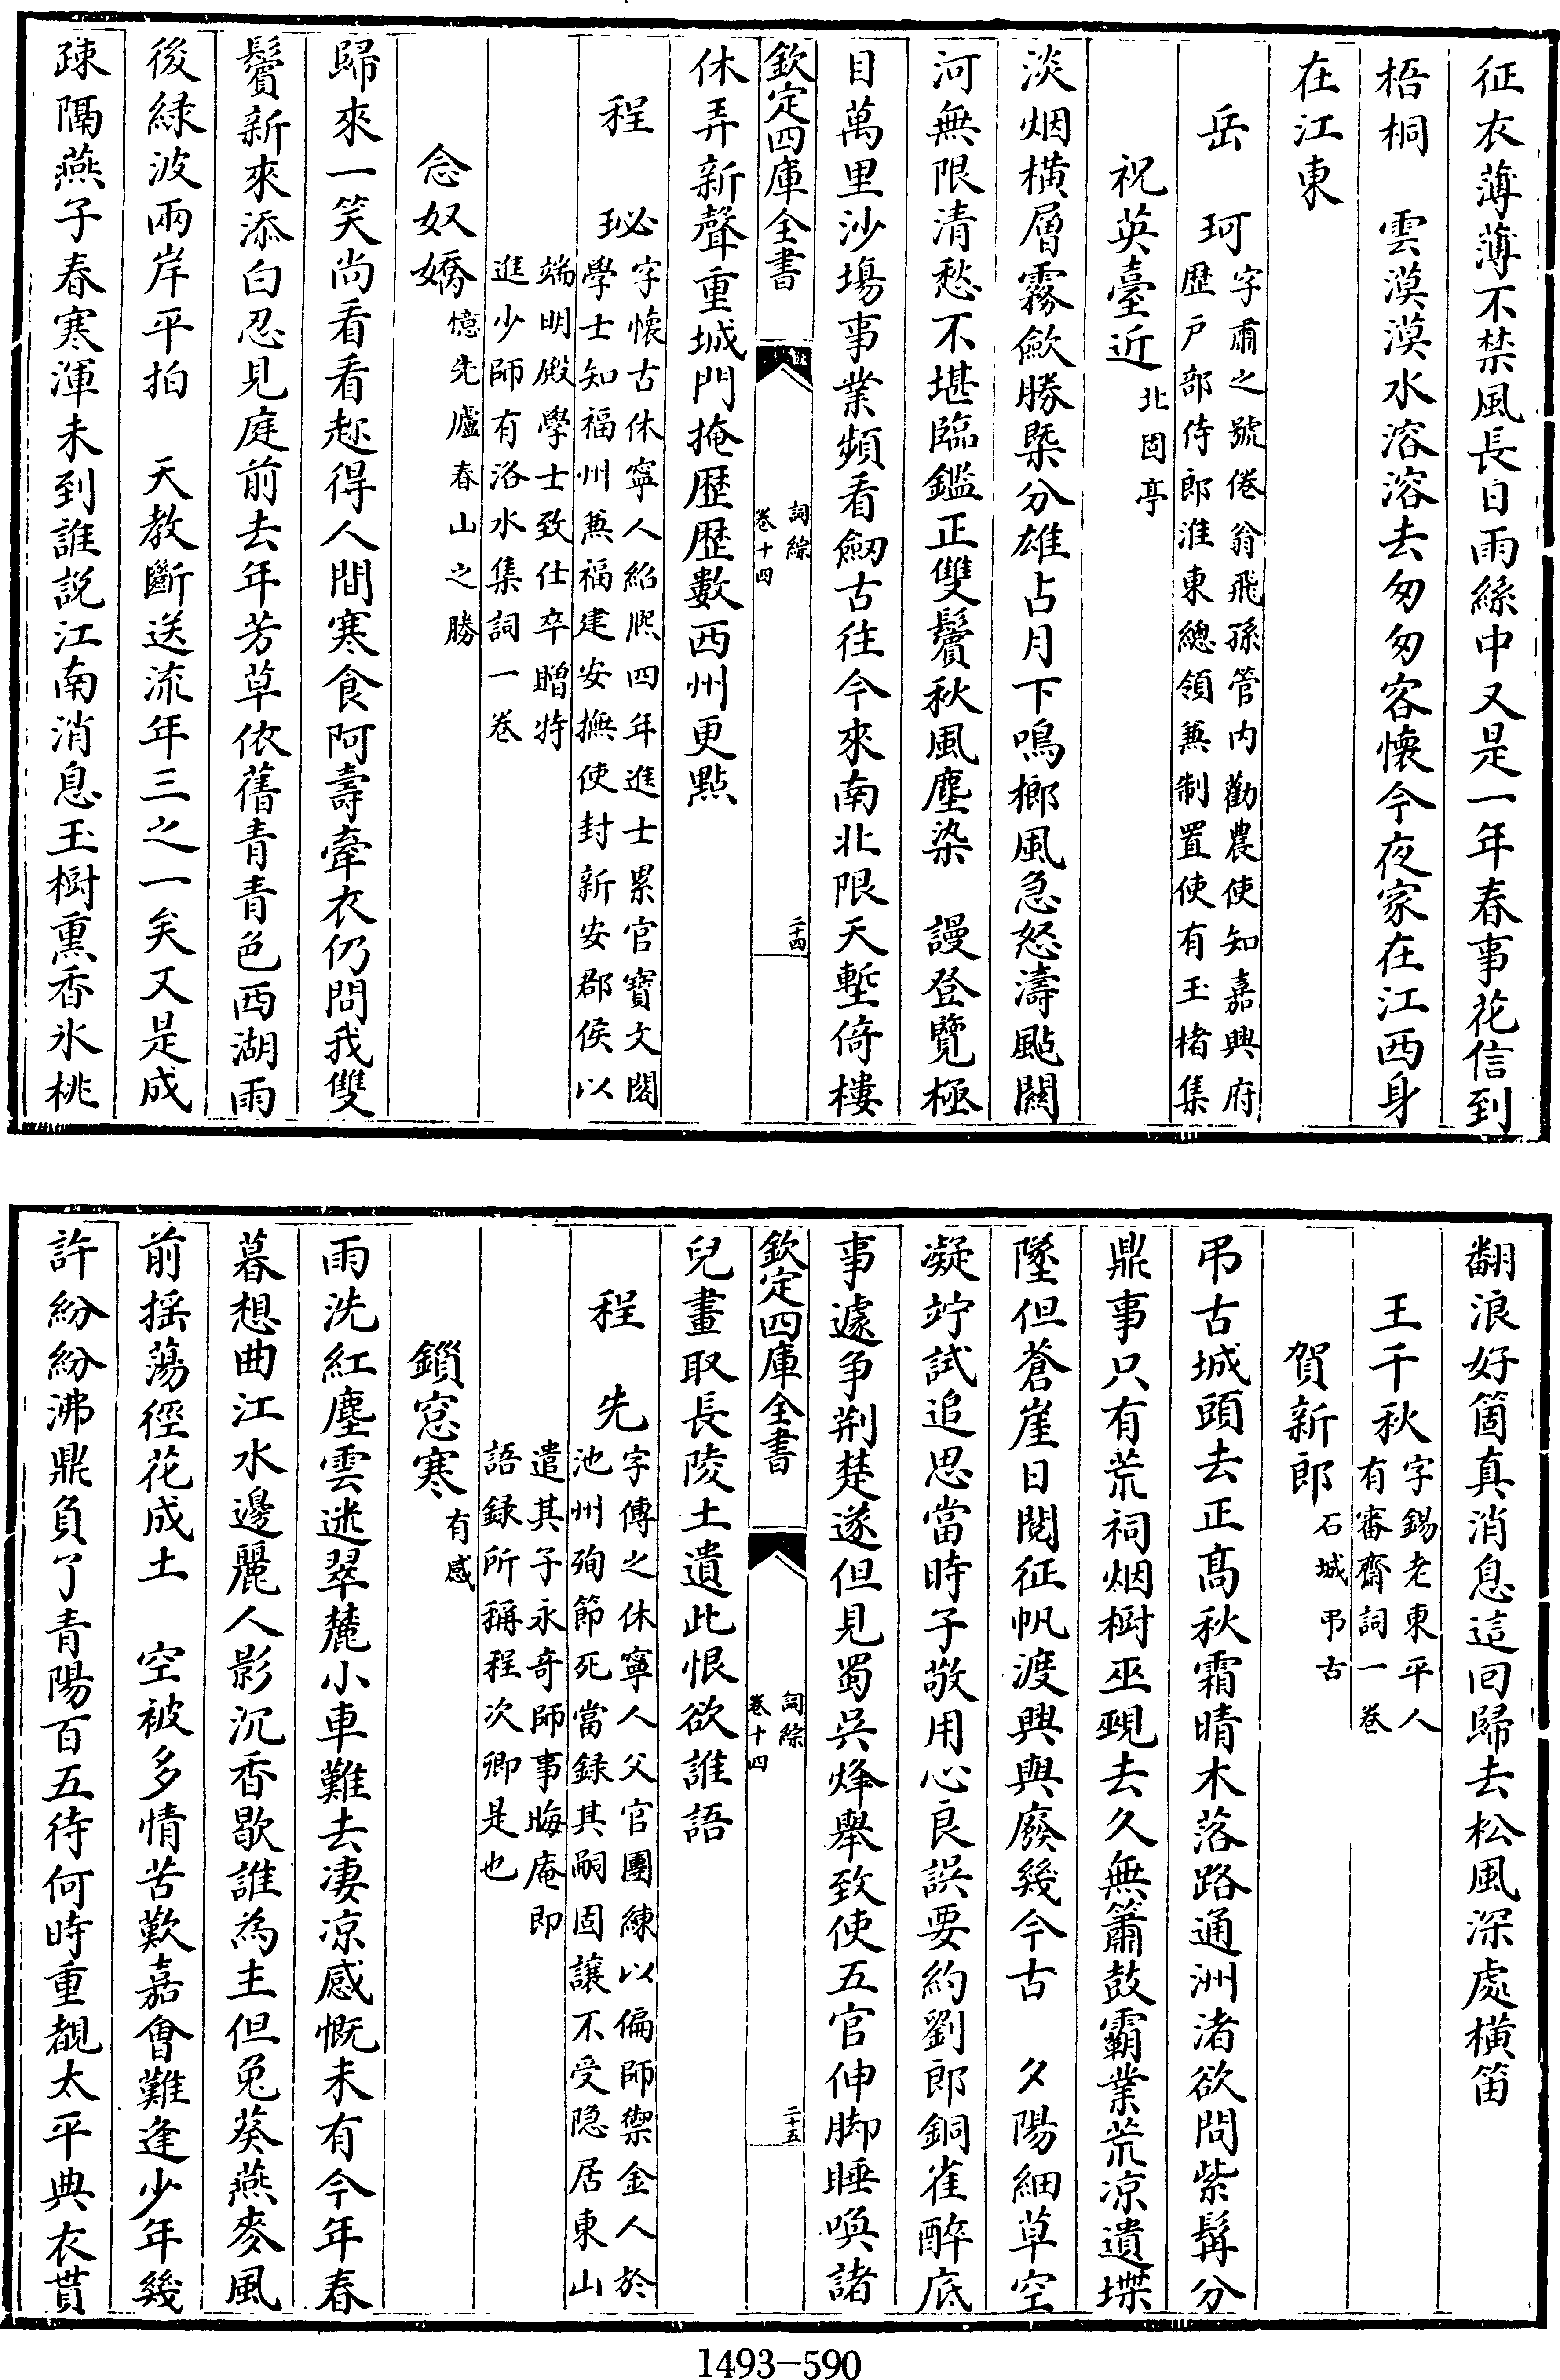 征衣薄薄不禁風長日雨絲中又是一年春事花信到
梧桐　雲漠漠水溶溶去匆匆客懷今夜家在江西身
在江東
岳　珂字肅之號倦翁飛孫管内勸農使知嘉興府
歴戸部侍郎淮東總領兼制置使有玉楮集
祝英臺近北固亭
淡烟橫層霧歛勝槩分雄占月下鳴榔風急怒濤颭關
河無限清愁不堪臨鑑正雙鬢秋風塵染　謾登覽極
目萬里沙塲事業頻看劒古往今來南北限天塹倚樓
欽定四庫全書
詞綜
卷十四
二十四
休弄新聲重城門掩歴歴數西州更點
程　珌字懐古休寧人紹熙四年進士累官寳文閣
學士知福州兼福建安撫使封新安郡侯以
端明殿學士致仕卒贈特
進少師有洛水集詞一卷
念奴嬌憶先廬春山之勝
歸來一笑尚看看趂得人間寒食阿壽牽衣仍問我雙
鬢新來添白忍見庭前去年芳草依舊青青色西湖雨
後緑波兩岸平拍　天教斷送流年三之一矣又是成
疎隔燕子春寒渾未到誰說江南消息玉樹熏香氷桃
翻浪好箇真消息這回歸去松風深處橫笛
王千秋字錫老東平人
有審齋詞一卷
賀新郎石城弔古
弔古城頭去正髙秋霜晴木落路通洲渚欲問紫髯分
鼎事只有荒祠烟樹巫覡去久無簫鼓霸業荒凉遺堞
墜但蒼崖日閱征帆渡興與廢幾今古　夕陽細草空
凝竚試追思當時子敬用心良誤要約劉郎銅雀醉底
事遽争荆楚遂但見蜀吳烽舉致使五官伸脚睡喚諸
欽定四庫全書
詞綜
卷十四
二十五
兒晝取長陵土遺此恨欲誰語
程　先字傳之休寧人父官團練以偏師禦金人於
池州殉節死當録其嗣固讓不受隐居東山
遣其子永奇師事晦庵即
語録所稱程次卿是也
鎖窓寒有感
雨洗紅塵雲迷翠麓小車難去凄凉感慨未有今年春
暮想曲江水邊麗人影沉香歇誰為主但兎葵燕麥風
前揺蕩徑花成土　空被多情苦歎嘉會難逢少年幾
許紛紛沸鼎負了青陽百五待何時重覩太平典衣貰
1493—590